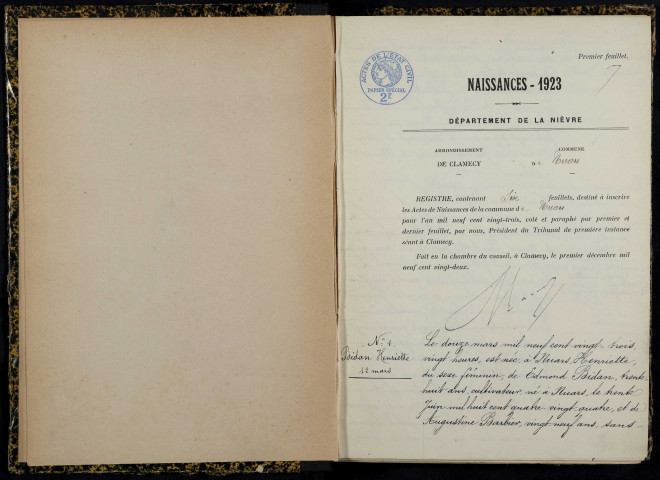 Premier feuillet.
ACTES DE L'ÉTAT CIVIL
PAPIER SPÉCIAL
2F
NAISSANCES - 1923
DÉPARTEMENT DE LA NIÈVRE
ARRONDISSEMENT
DE CLAMECY
COMMUNE
De Nuars
REGISTRE, contenant Six feuillets, destiné à inscrire
les Actes de Naissances de la commune de Nuars
pour l'an mil neuf cent vingt-trois, coté et paraphé par premier et
dernier feuillet, par nous, Président du Tribunal de première instance
séant à Clamecy.
Fait en la chambre du conseil, à Clamecy, le premier décembre mil
neuf cent vingt-deux.
No 1
Bidan Henriette
12 mars
Le douze mars mil neuf cent vingt-trois,
vingt heures, est née, à Nuars, Henriette,
du sexe féminin, de Edmond Bidan, trente
huit ans, cultivateur, né à Nuars, le trente
Juin mil huit cent quatre vingt-quatre, et de
Augustine Barbier, vingt neuf ans, sans